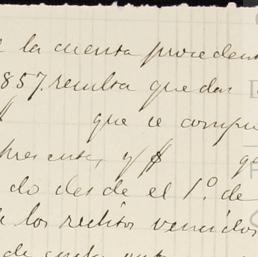 e la cuenta procedent
857. resulta quedar
$ que se compu
presente, y $ q
do desde el 1º. de
los reditos vencidos